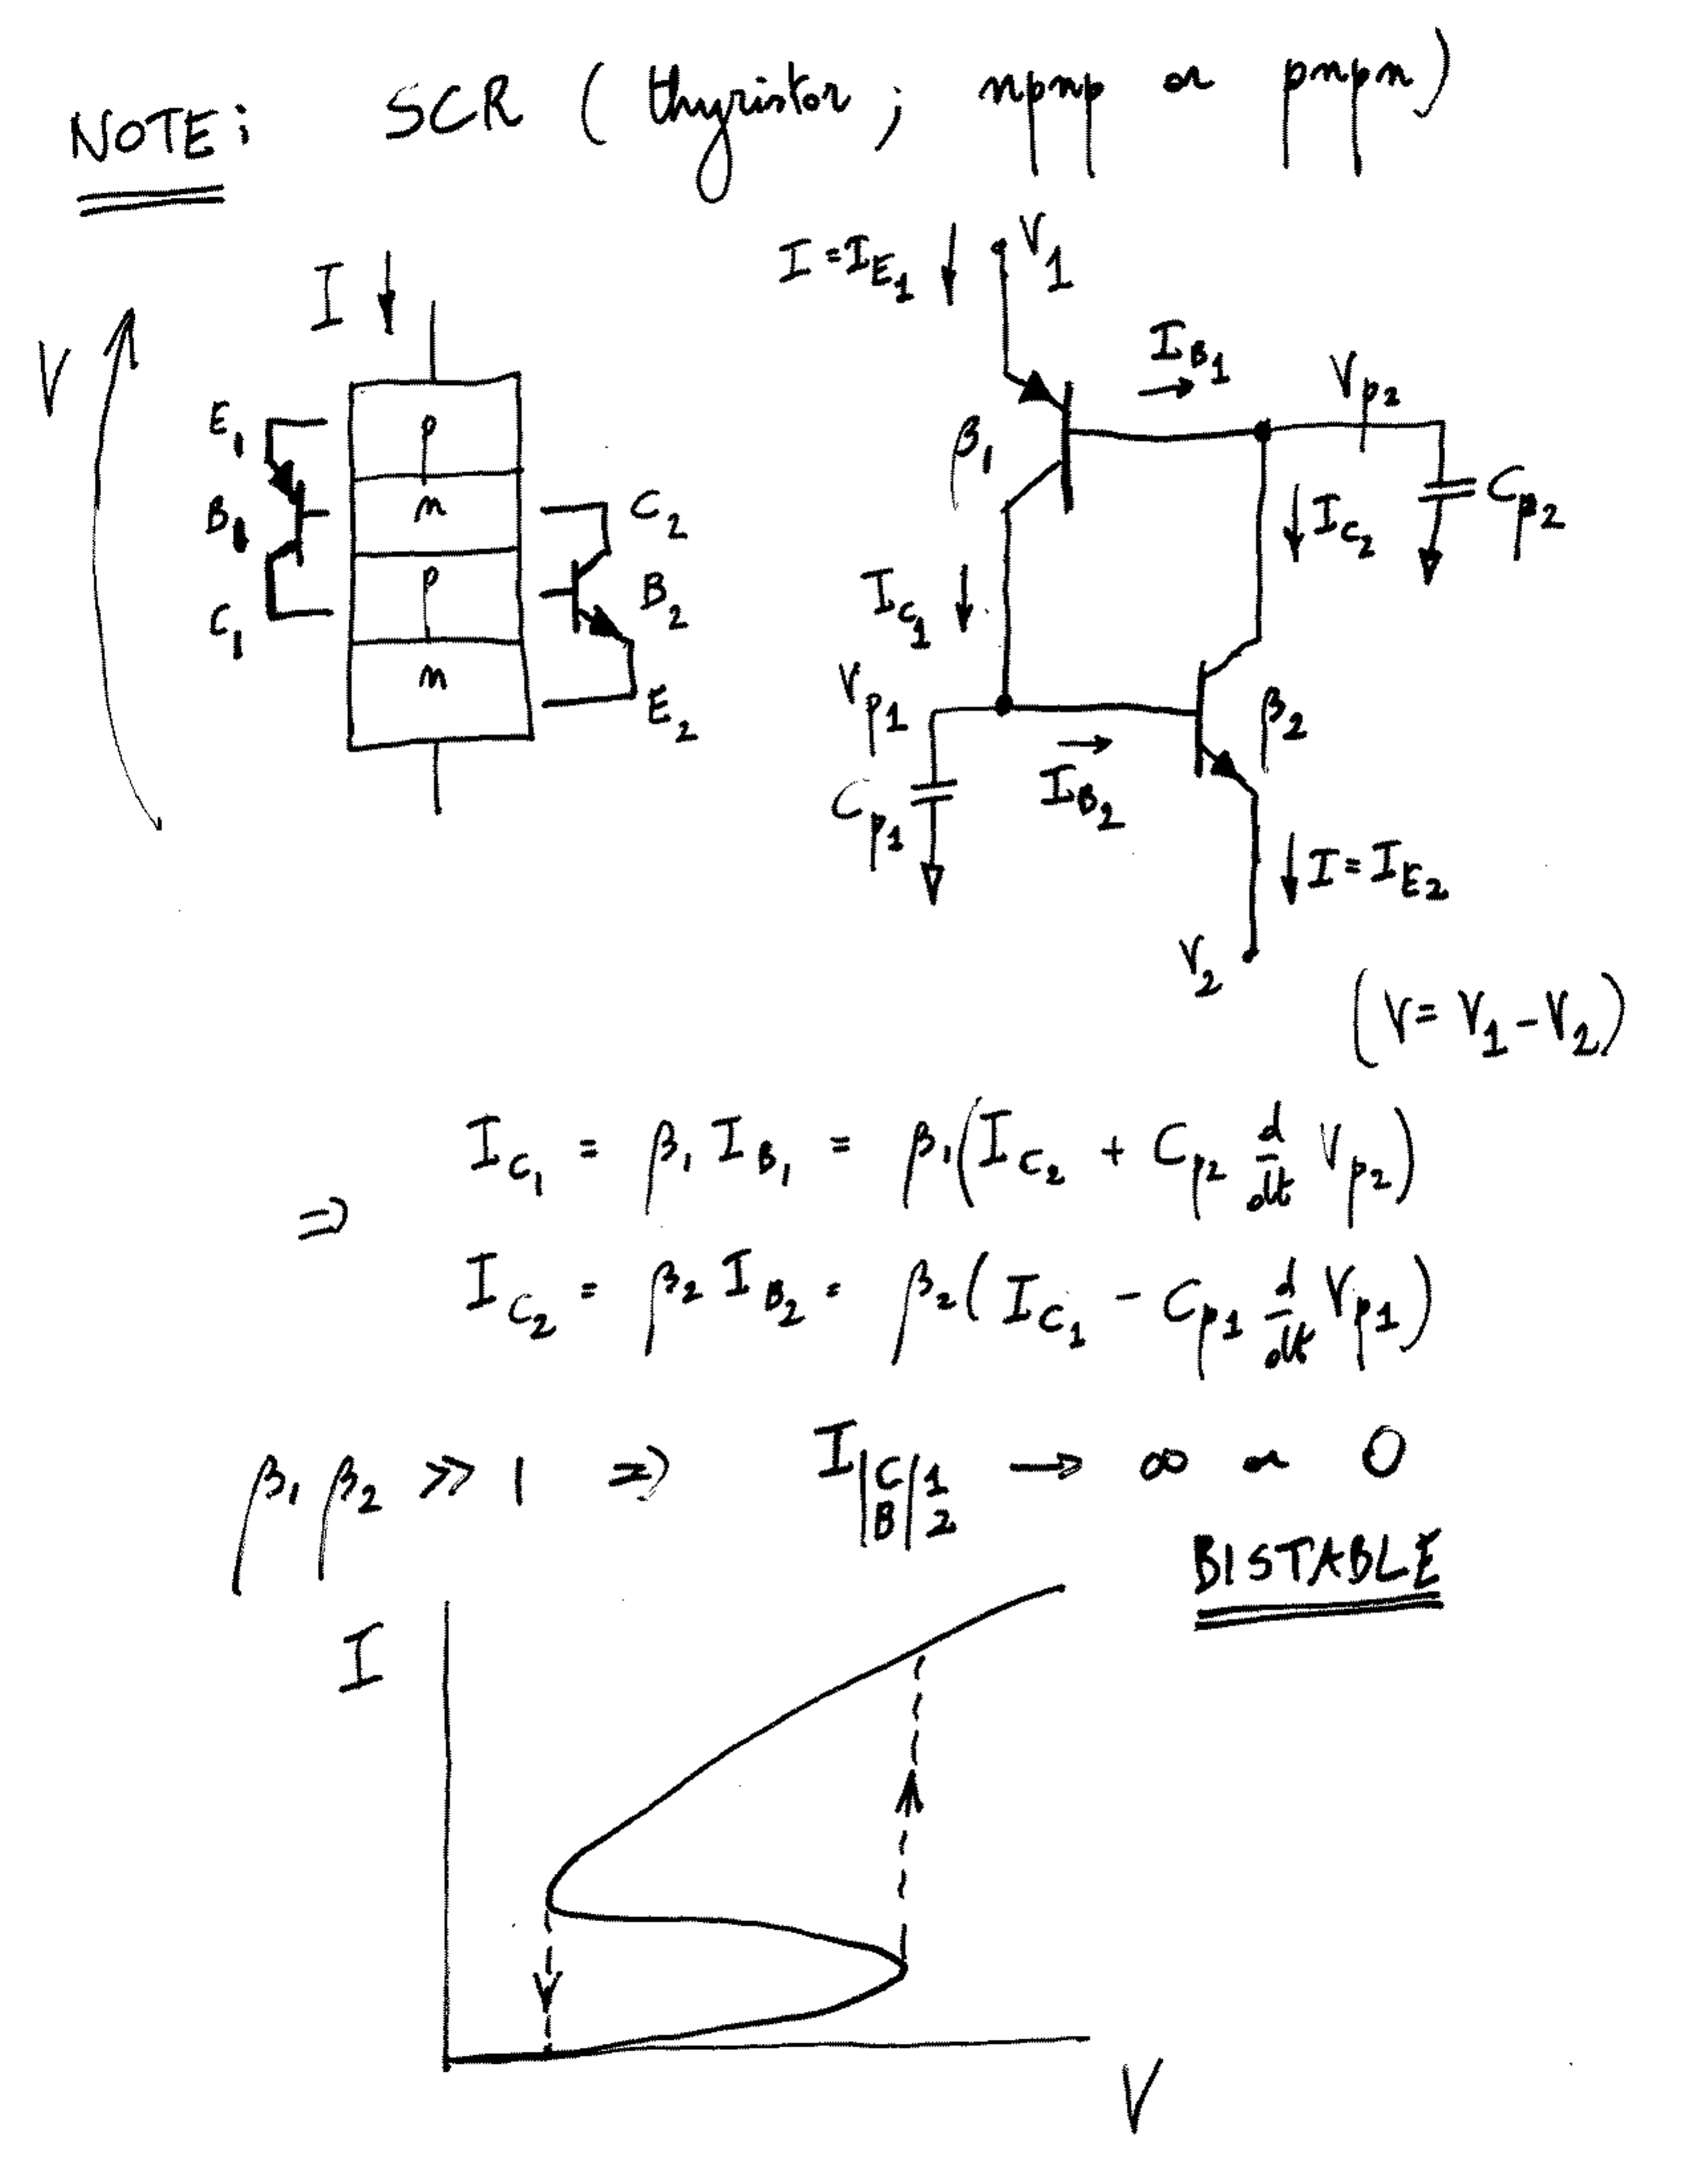 NOTE: SCR (thyristor; npnp or pnpn)
I
V
E1
B1
C1
p
n
p
n
C2
B2
E2
I = IE1
V1
IB1
Vp2
β1
Cp2
IC2
IC1
Vp1
Cp1
IB2
β2
I = IE2
V2
(V = V1 - V2)
IC1 = β1 IB1 = β1(IC2 + Cp2 d/dt Vp2)
⇒
IC2 = β2 IB2 = β2(IC1 - Cp1 d/dt Vp1)
β1 β2 >> 1 ⇒ I|C/B|1/2 → ∞ or 0
BISTABLE
I
V